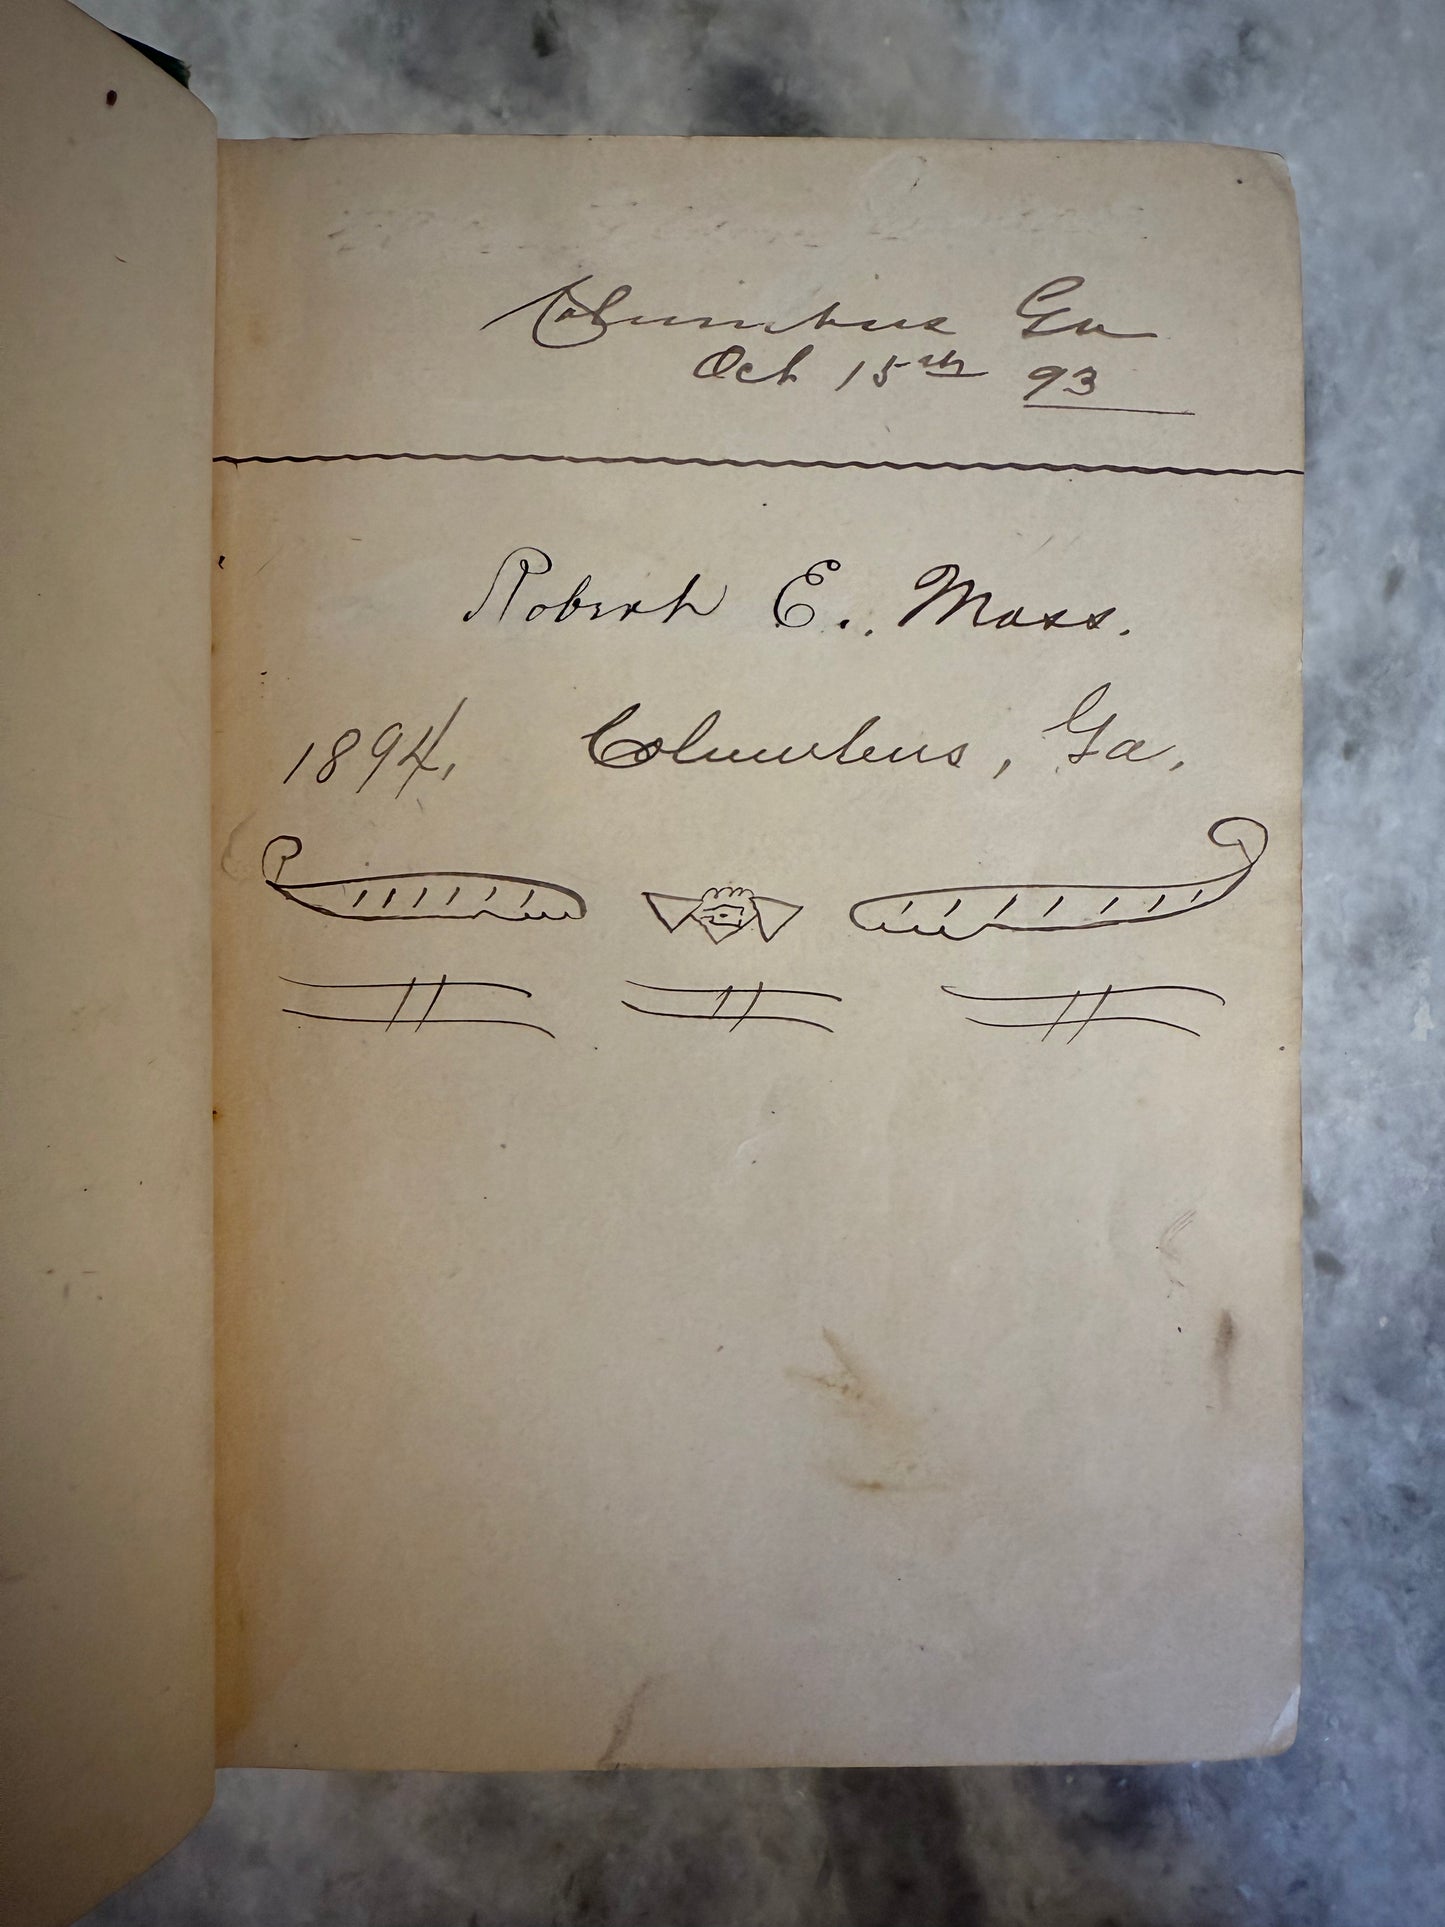 Columbus Ga
Oct 15th 93
Robert E. Moss.
1894, Columbus, Ga,